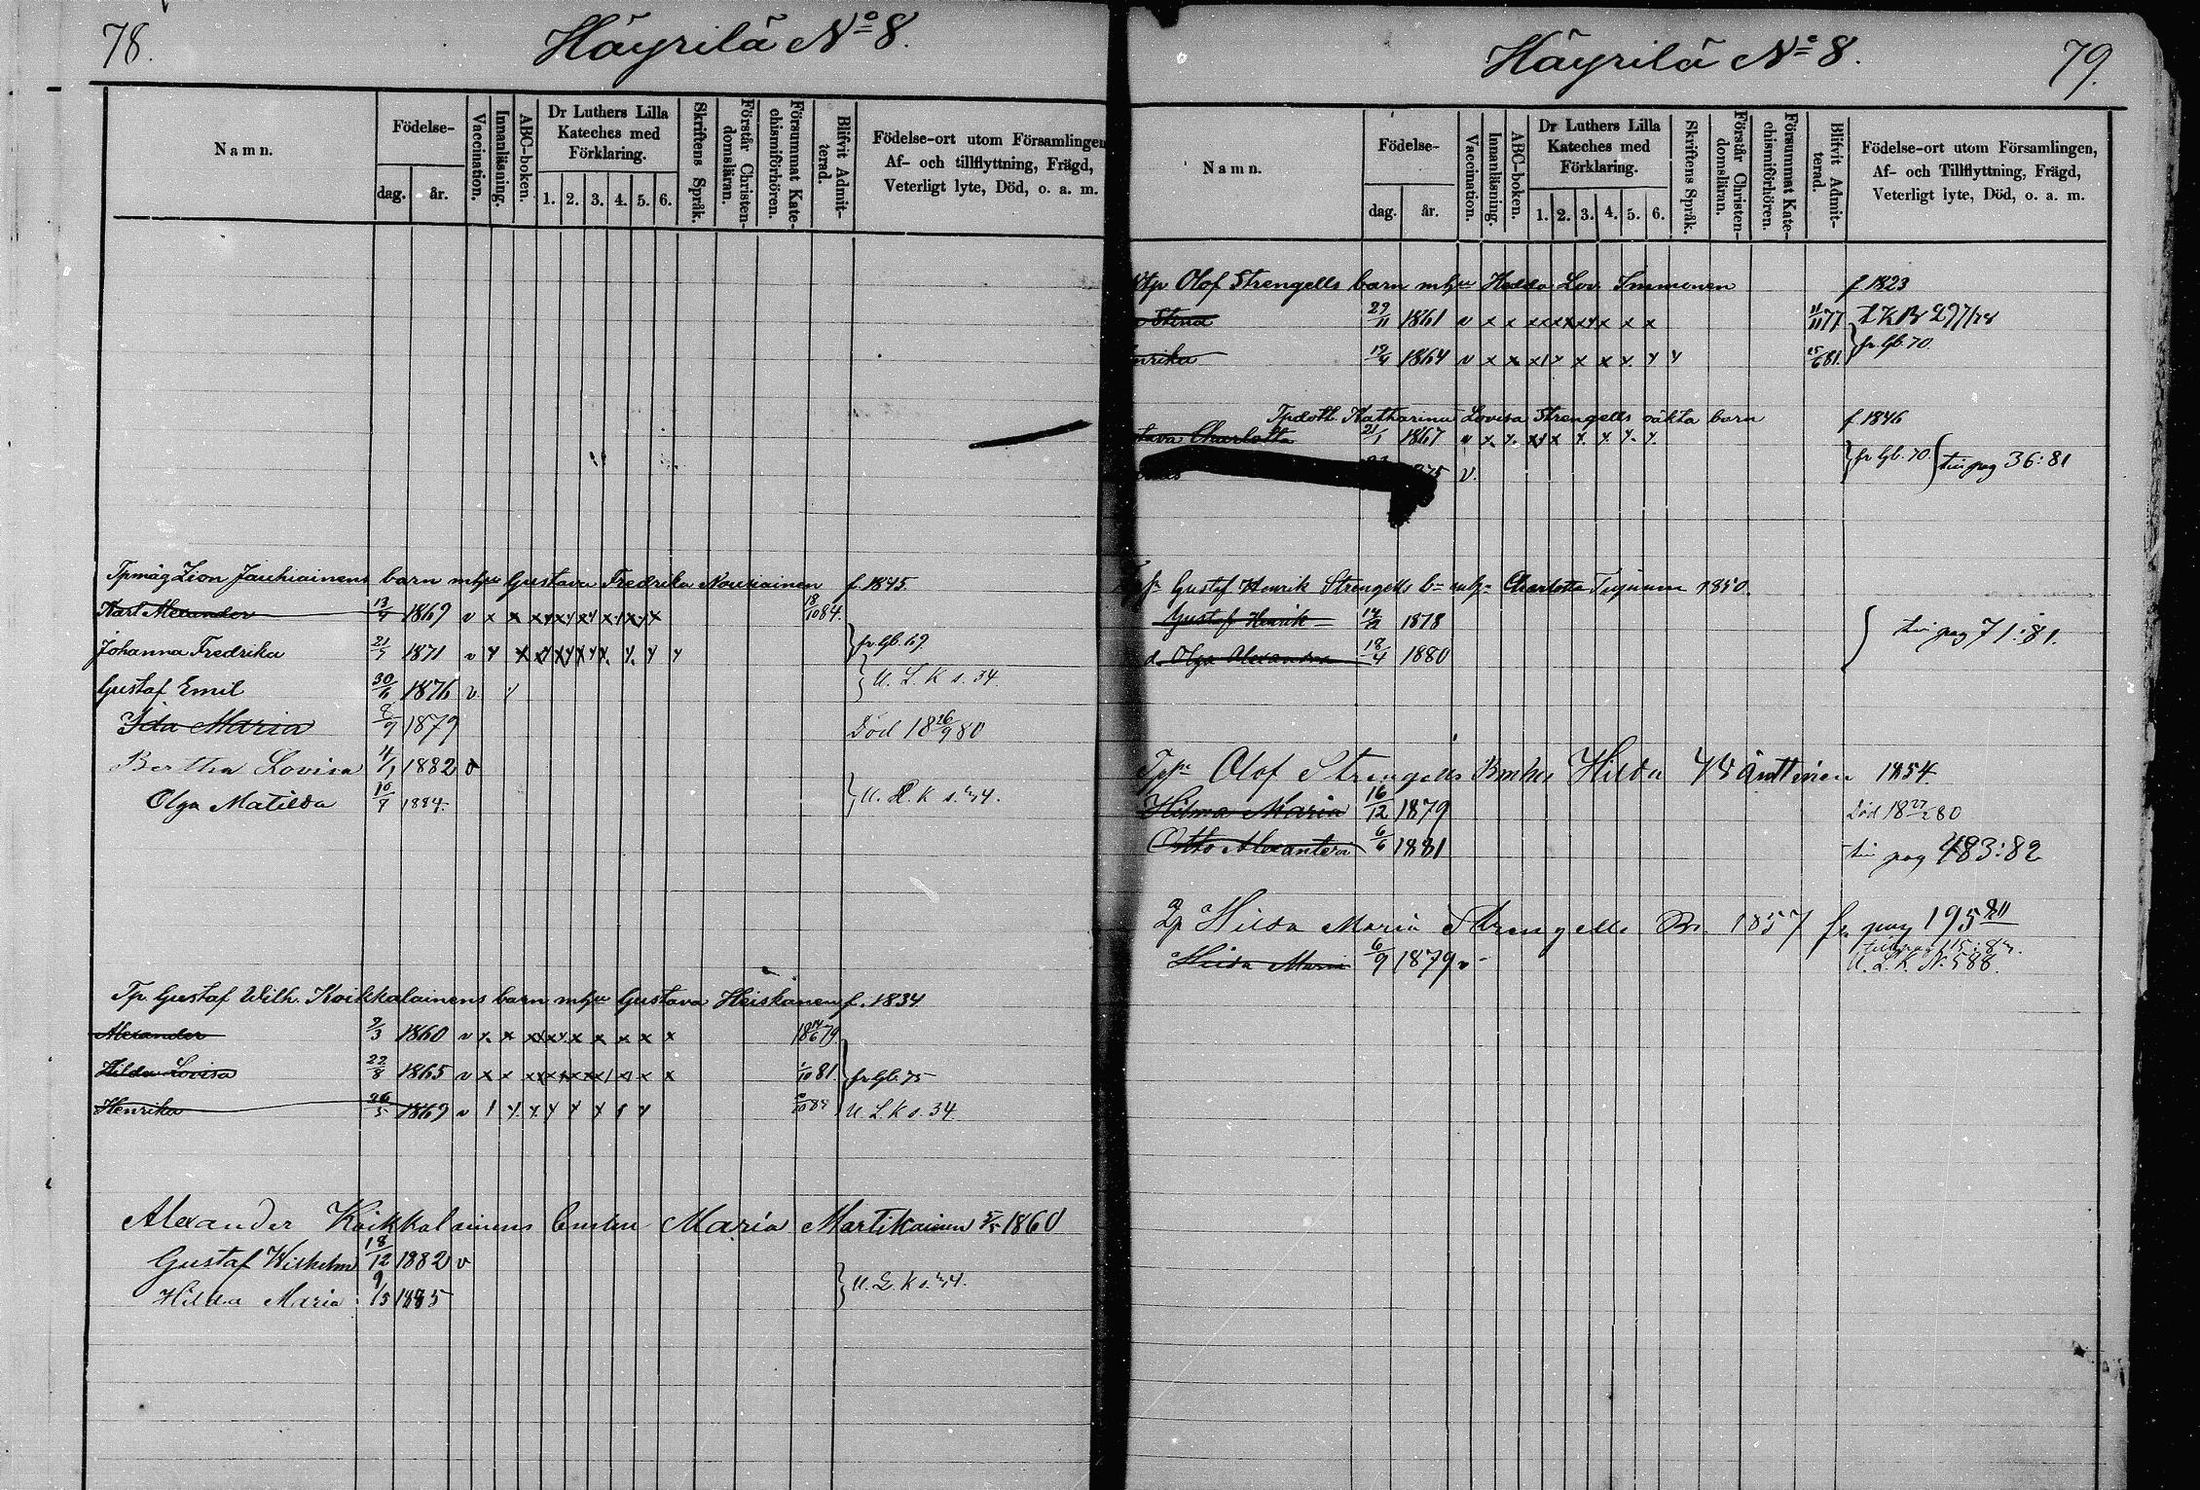 78.
Häyrilä No 8.
Namn.
Födelse-
dag.
år.
Vaccination.
Innanläsning.
ABC-boken.
Dr Luthers Lilla
Kateches med
Förklaring.
1. 2. 3. 4. 5. 6.
Skriftens Språk.
Förstår Christen-
domsläran.
Försummat Kate-
chismiförhören.
Blifvit Admit-
terad.
Födelse-ort utom Församlingen
Af- och tillflyttning, Frägd,
Veterligt lyte, Död, o. a. m.
Tpmåg Zion Jauhiainens barn mhu Gustava Fredrika Nousiainen f. 1845.
Karl Alexander 13/4 1869 v x x x x x x x x x 18/10 84.
Johanna Fredrika 21/7 1871 v fr Gb. 69.
Gustaf Emil 30/6 1876 v. U. L. K s. 34.
Ida Maria 8/9 1879 Död 18 26/9 80
Bertha Lovisa 4/1 1882 v
Olga Matilda 10/7 1884. U. L. K s. 34.
Tp. Gustaf Wilh. Koikkalainens barn mhu Gustava Heiskanen f. 1834
Alexander 9/3 1860 v 18 14/6 79
Hilda Lovisa 22/8 1865 v 1/10 81. fr Gb. 75
Henrika 26/5 1869 v U. L. K s. 34.
Alexander Koikkalainens Maria Martikainen 5/5 1860
Gustaf Wilhelm 18/12 1882 v
Hilda Maria 9/5 1885 U. L. K s. 34.
Häyrilä No 8.
79.
Namn.
Födelse-
dag.
år.
Vaccination.
Innanläsning.
ABC-boken.
Dr Luthers Lilla
Kateches med
Förklaring.
1. 2. 3. 4. 5. 6.
Skriftens Språk.
Förstår Christen-
domsläran.
Försummat Kate-
chismiförhören.
Blifvit Admit-
terad.
Födelse-ort utom Församlingen,
Af- och Tillflyttning, Frägd,
Veterligt lyte, Död, o. a. m.
Olof Strengells barn mhu Hedda Lov. Immonen f 1823
Stina 29/11 1861 v 11/11 77
19/4 1864 v 25/6 81. fr Gb. 70.
Tpdott. Katharina Lovisa Strengells oäkta barn f. 1846
Charlotta 21/1 1867 v
v. fr Gb. 70. till pag 36:81
Gustaf Henrik Strengells Charlotta 1850.
Gustaf Henrik 1878
Olga Alexandra 18/4 1880 till pag 71:81.
Olof Strengells Hilda Wänttinen 1854
Hilma Maria 16/12 1879 Död 18 27/2 80
Otto Alexanteri 6/6 1881 till pag 483:82
Hilda Maria Strengells 1857 fr pag 195
Hilda Maria 6/9 1879 v
U. L. K. N. 588.